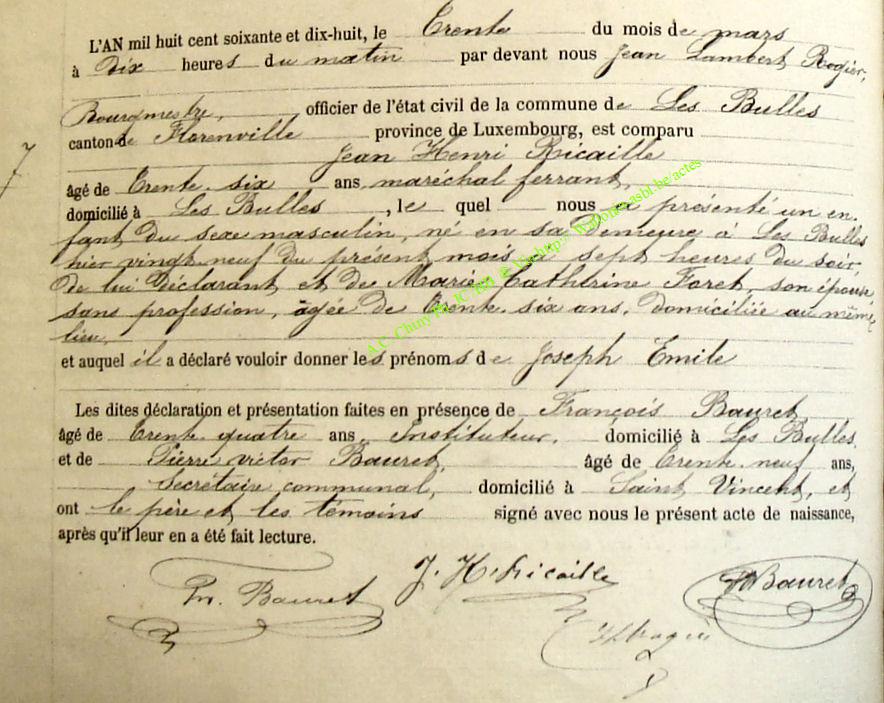 L'AN mil huit cent soixante et dix-huit, le Trente du mois de mars
à Dix heures du matin par devant nous Jean Lambert Rogier,
Bourgmestre, officier de l'état civil de la commune de Les Bulles
canton de Florenville province de Luxembourg, est comparu
Jean Henri Ricaille
7
âgé de Trente-six ans, maréchal ferrant,
domicilié à Les Bulles, le quel nous a présenté un en-
fant du sexe masculin, né en sa demeure à Les Bulles
hier vingt-neuf du présent mois à sept heures du soir,
de lui déclarant et de Marie Catherine Foret, son épouse
sans profession, âgée de Trente-six ans, domiciliée au même
lieu,
et auquel il a déclaré vouloir donner les prénoms de Joseph Emile
Les dites déclaration et présentation faites en présence de François Bauret,
âgé de Trente-quatre ans, Instituteur, domicilié à Les Bulles,
et de Pierre victor Bauret, âgé de Trente-neuf ans,
Secrétaire communal, domicilié à Saint Vincent, et
ont le père et les témoins signé avec nous le présent acte de naissance,
après qu'il leur en a été fait lecture.
Bauret J. H. Ricaille Bauret